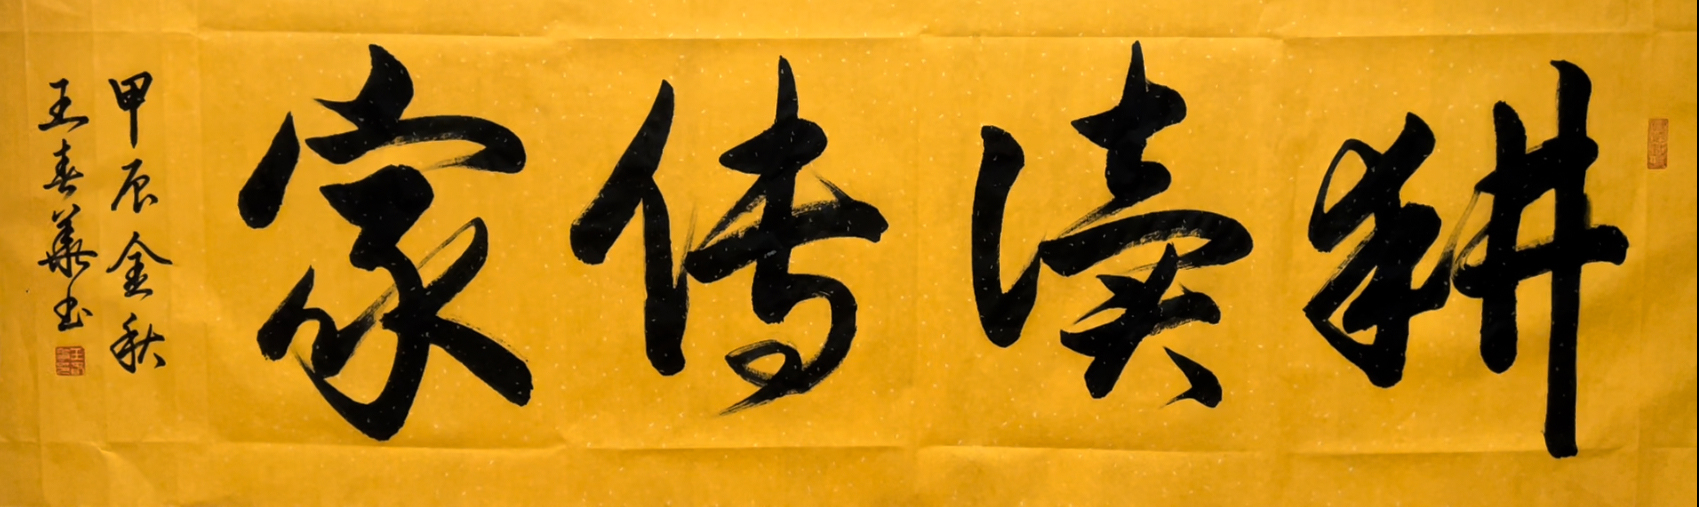 耕读传家
甲辰金秋
王春华书